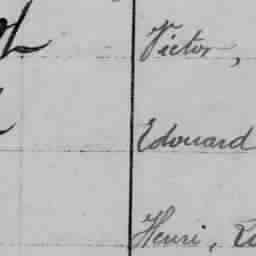 Victor,
Edouard
Henri,